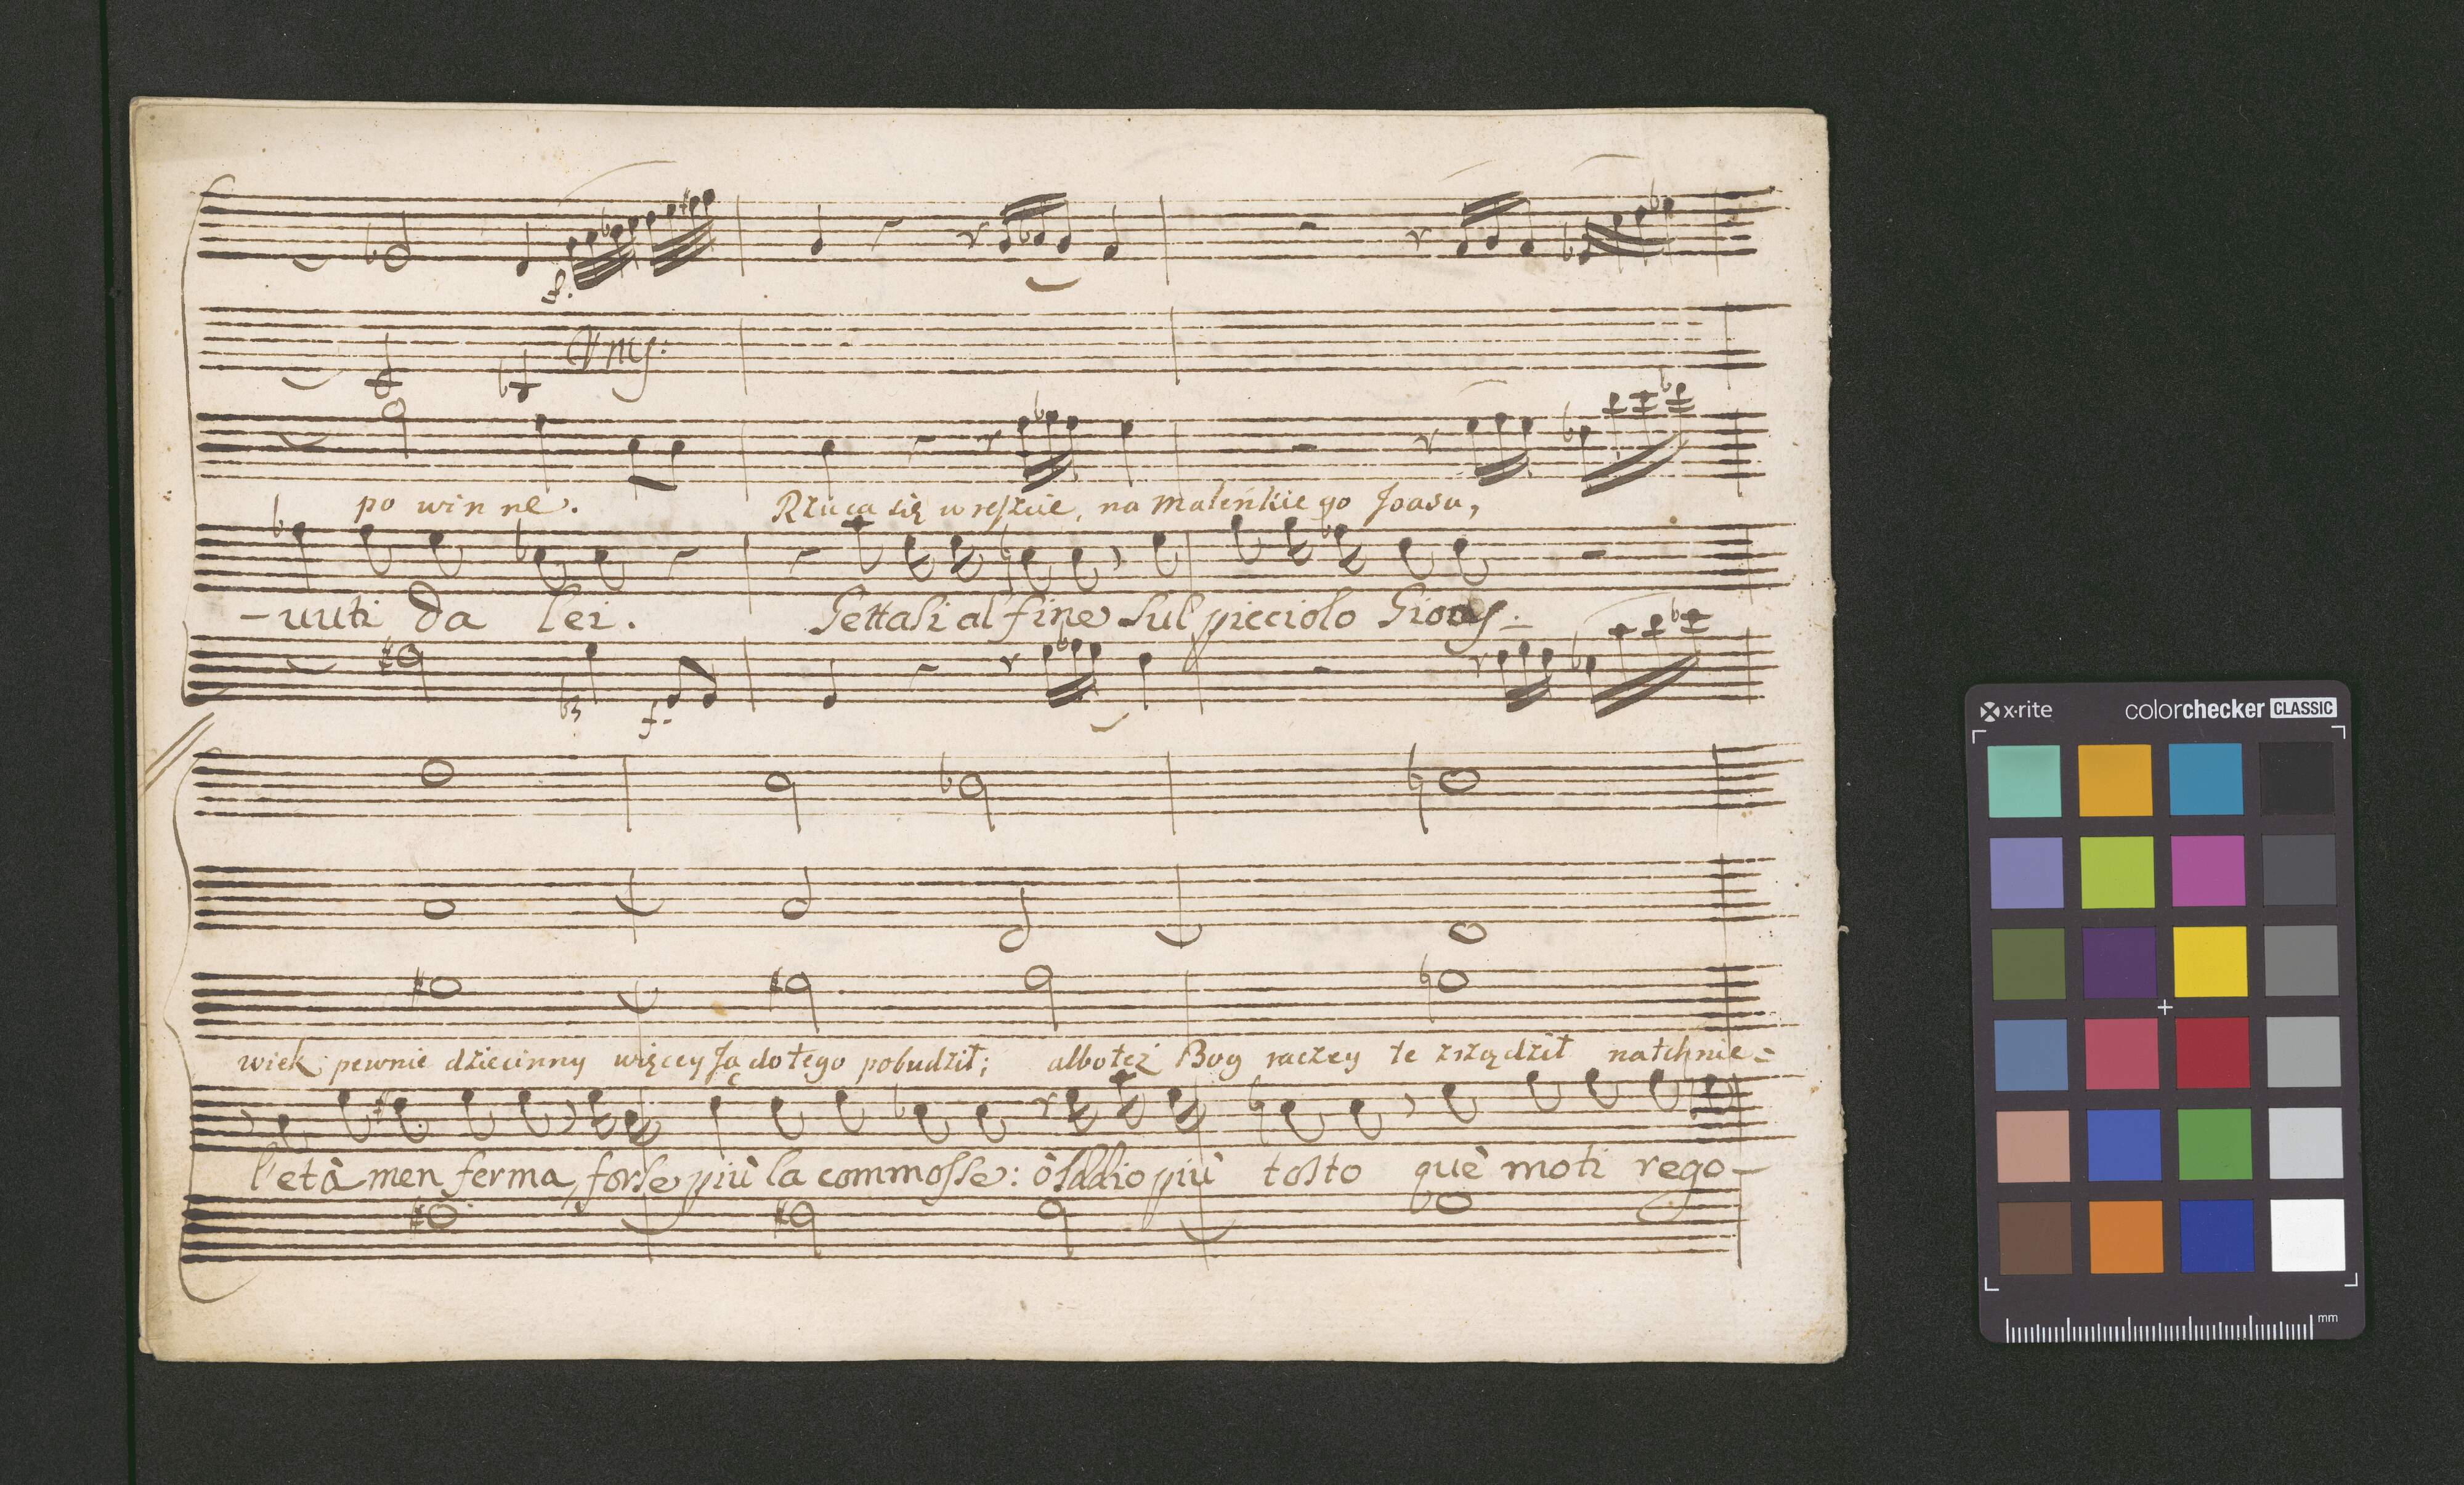 f.
Vnis:
po win ne. Rzuca się wreszcie, na maleńkie go Joasa,
-uuti da lei. Gettasi al fine sul picciolo Gioas.
f.
wiek pewnie dziecinny więcey Ją do tego pobudził; albo też Bog raczey te zrządził natchnie=
l'età men ferma, forse più la commosse: ò Iddio più tosto què moti rego-
x-rite colorchecker CLASSIC
mm